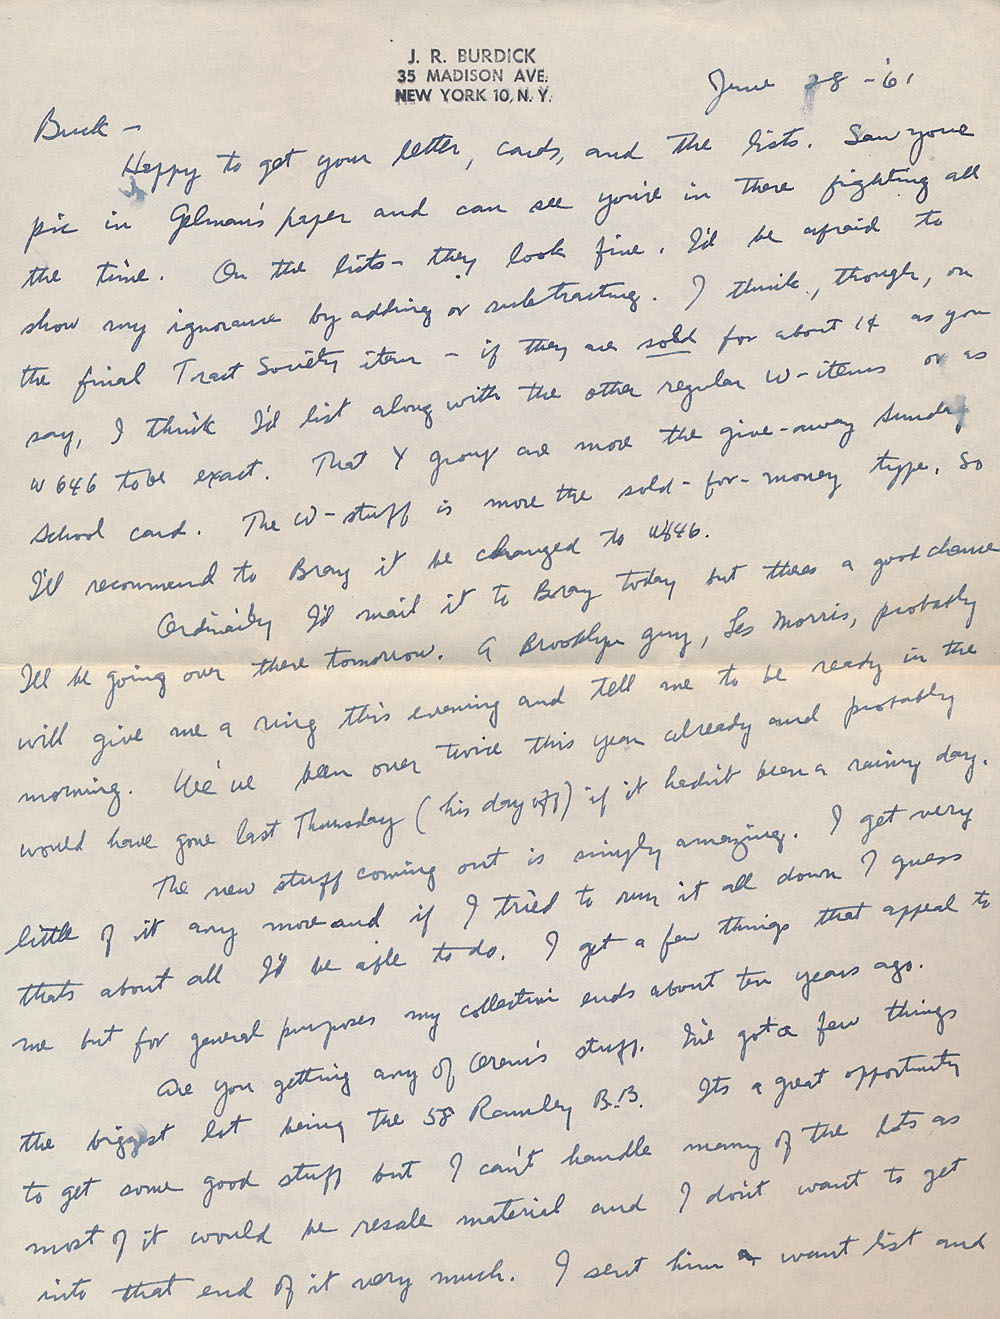 J. R. BURDICK
35 MADISON AVE.
NEW YORK 10, N. Y.
June 28 - '61
Buck -
Happy to get your letter, cards, and the lists. Saw your
pic in Gelman's paper and can see you're in there fighting all
the time. On the lists - they look fine. I'd be afraid to
show my ignorance by adding or subtracting. I think, though, on
the final Tract Society item - if they are sold for about 1¢ as you
say, I think I'd list along with the other regular W-items or as
W646 to be exact. That Y group are more the give-away Sunday
School card. The W-stuff is more the sold-for-money type. So
I'll recommend to Bray it be changed to W646.
Ordinarily I'd mail it to Bray today but theres a good chance
I'll be going over there tomorrow. A Brooklyn guy, Les Morris, probably
will give me a ring this evening and tell me to be ready in the
morning. We've been over twice this year already and probably
would have gone last Thursday (his day off) if it hadn't been a rainy day.
The new stuff coming out is simply amazing. I get very
little of it any more and if I tried to run it all down I guess
thats about all I'd be able to do. I get a few things that appeal to
me but for general purposes my collection ends about ten years ago.
Are you getting any of Orem's stuff. I've got a few things
the biggest lot being the 58 Ramley B.B. Its a great opportunity
to get some good stuff but I can't handle many of the lots as
most of it would be resale material and I don't want to get
into that end of it very much. I sent him a want list and